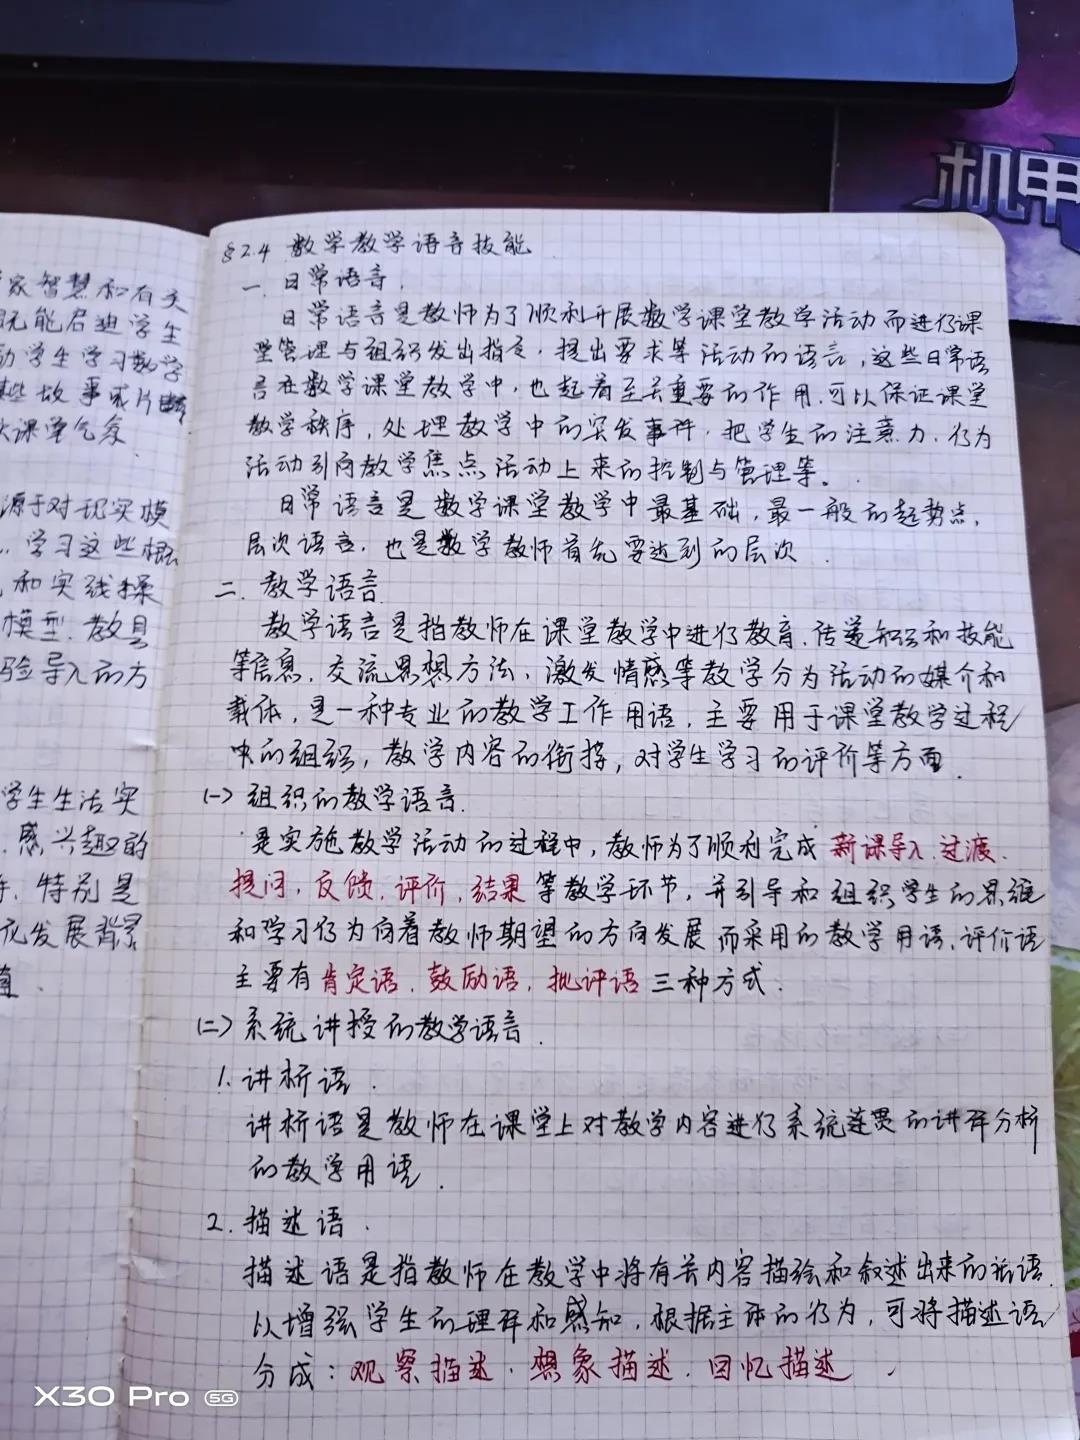 机甲
家智慧和有文
既能启迪学生
动学生学习数学
某些故事或片断
跃课堂气氛
源于对现实模
学习这些概
和实践操
模型、教具
验导入的方
学生生活实
感兴趣的
特别是
发展背景
§2.4 数学教学语言技能
一、日常语言.
日常语言是教师为了顺利开展数学课堂教学活动而进行课
堂管理与组织发出指令,提出要求等活动的语言,这些日常语
言在数学课堂教学中,也起着至关重要的作用.可以保证课堂
教学秩序,处理教学中的突发事件,把学生的注意力、行为
活动引向教学焦点活动上来的控制与管理等。
日常语言是数学课堂教学中最基础,最一般的起势点,
层次语言,也是数学教师首先要达到的层次.
二、教学语言
教学语言是指教师在课堂教学中进行教育、传递知识和技能
等信息、交流思想方法、激发情感等教学分为活动的媒介和
载体,是一种专业的教学工作用语,主要用于课堂教学过程
中的组织,教学内容的衔接,对学生学习的评价等方面.
(一) 组织的教学语言.
是实施教学活动的过程中,教师为了顺利完成新课导入、过渡、
提问,反馈,评价,结果等教学环节,并引导和组织学生的思维
和学习行为向着教师期望的方向发展而采用的教学用语,评价语
主要有肯定语、鼓励语,批评语三种方式.
(二) 系统讲授的教学语言.
1. 讲析语.
讲析语是教师在课堂上对教学内容进行系统连贯的讲解分析
的教学用语.
2. 描述语.
描述语是指教师在教学中将有关内容描绘和叙述出来的话语.
以增强学生的理解和感知,根据主体的行为,可将描述语
分成:观察描述、想象描述、回忆描述.
X30 Pro 5G